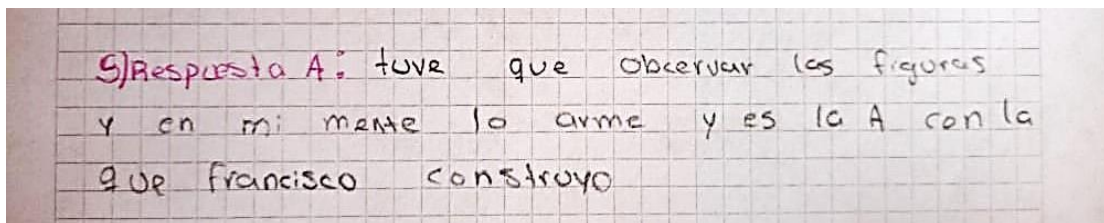 5) Respuesta A: tuve que obcervar las figuras
y en mi mente lo arme y es la A con la
que francisco construyo